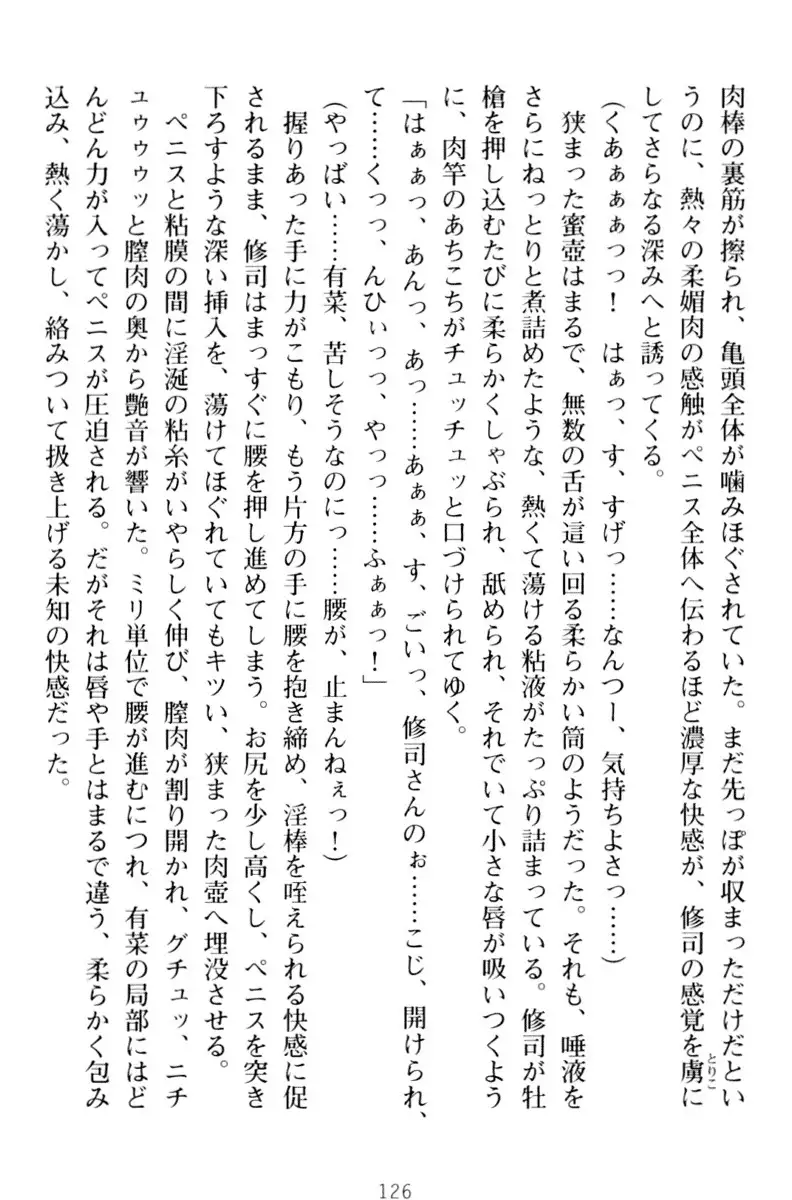 肉棒の裏筋が擦られ、亀頭全体が噛みほぐされていた。まだ先っぽが収まっただけだとい
うのに、熱々の柔媚肉の感触がペニス全体へ伝わるほど濃厚な快感が、修司の感覚を虜に
とりこ
してさらなる深みへと誘ってくる。
(くあぁぁぁっっ! はぁっ、す、すげっ……なんつー、気持ちよさっ……)
狭まった蜜壺はまるで、無数の舌が這い回る柔らかい筒のようだった。それも、唾液を
さらにねっとりと煮詰めたような、熱くて蕩ける粘液がたっぷり詰まっている。修司が牡
槍を押し込むたびに柔らかくしゃぶられ、舐められ、それでいて小さな唇が吸いつくよう
に、肉竿のあちこちがチュッチュッと口づけられてゆく。
「はぁぁっ、あんっ、あっ……あぁぁ、す、ごいっ、修司さんのぉ……こじ、開けられ、
て……くっっ、んひぃっっ、やっっ……ふぁぁっ!」
(やっばい……有菜、苦しそうなのにっ……腰が、止まんねぇっ!)
握りあった手に力がこもり、もう片方の手に腰を抱き締め、淫棒を咥えられる快感に促
されるまま、修司はまっすぐに腰を押し進めてしまう。お尻を少し高くし、ペニスを突き
下ろすような深い挿入を、蕩けてほぐれていてもキツい、狭まった肉壺へ埋没させる。
ペニスと粘膜の間に淫涎の粘糸がいやらしく伸び、膣肉が割り開かれ、グチュッ、ニチ
ュゥゥゥッと膣肉の奥から艶音が響いた。ミリ単位で腰が進むにつれ、有菜の局部にはど
んどん力が入ってペニスが圧迫される。だがそれは唇や手とはまるで違う、柔らかく包み
込み、熱く蕩かし、絡みついて扱き上げる未知の快感だった。
126